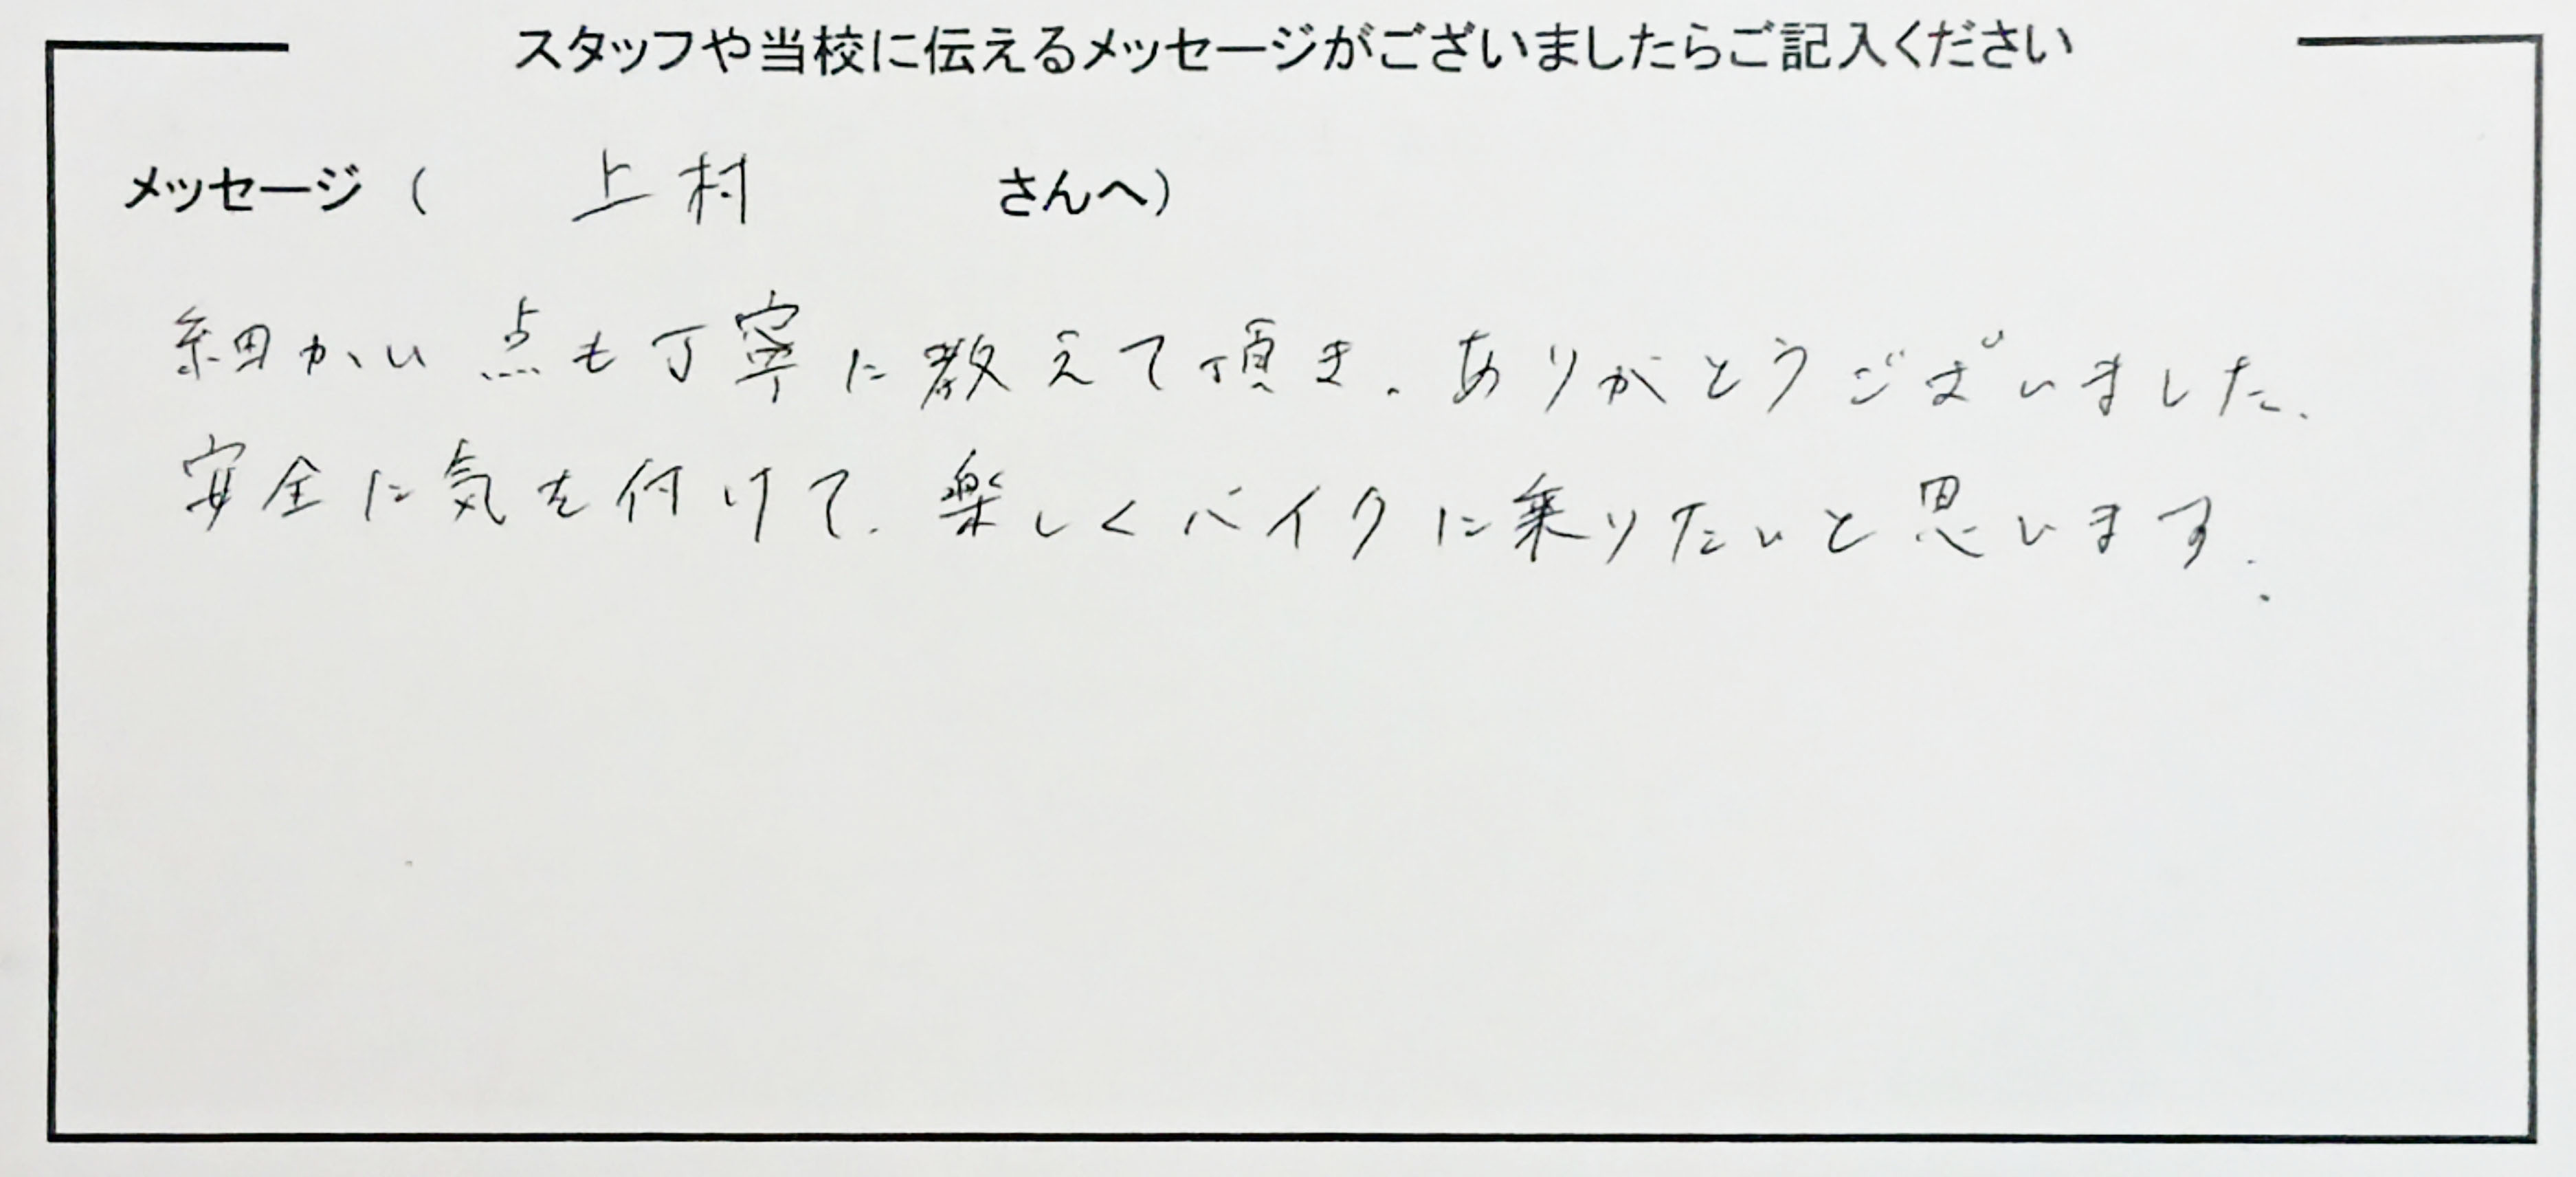 スタッフや当校に伝えるメッセージがございましたらご記入ください
メッセージ（ 上村 さんへ）
細かい点も丁寧に教えて頂き、ありがとうございました。
安全に気を付けて、楽しくバイクに乗りたいと思います。